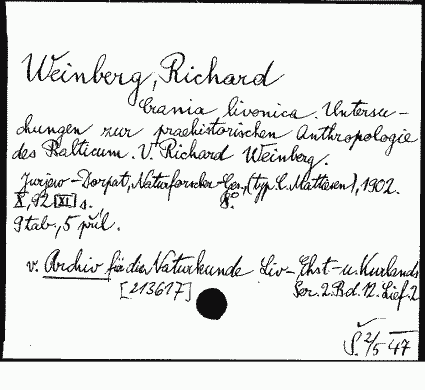 Weinberg, Richard
Crania livonica. Untersu-
chungen zur praehistorischen Anthropologie
des Balticum. V. Richard Weinberg.
Jurjew-Dorpat, Naturforscher-Ges., (typ. C. Mattiesen), 1902.
X, 92 [XI] s. 8°
9 tab., 5 příl.
v. Archiv für die Naturkunde Liv- Ehst- u. Kurlands
[213617] Ser. 2. Bd. 12. Lief. 2
S. 2/5 47